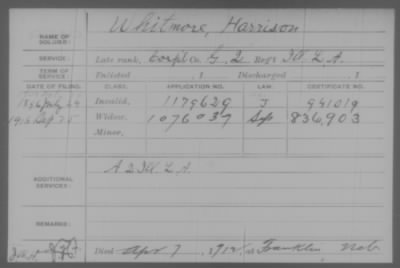 NAME OF SOLDIER: Whitmore, Harrison
SERVICE: Late rank, Corp'l Co. G, 2 Reg't Ill. L. A.
TERM OF SERVICE: Enlisted , 1 Discharged , 1
DATE OF FILING. CLASS. APPLICATION NO. LAW. CERTIFICATE NO.
1896 July Invalid, 1179629 J 941019
Sep Widow, 1076037 836,903
Minor,
ADDITIONAL SERVICES: A 2 Ill. L. A.
REMARKS:
Died Apr 7, 1915, at Franklin Neb.